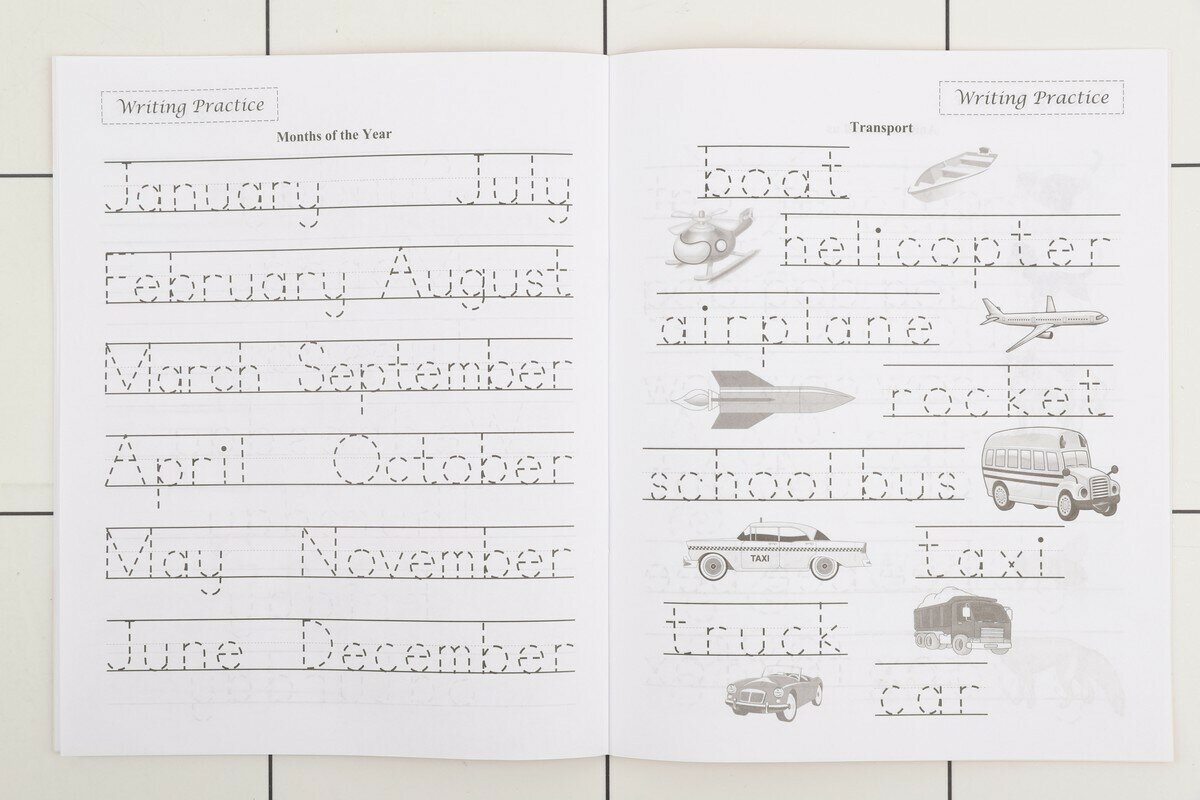 Writing Practice
Months of the Year
January July
February August
March September
April October
May November
June December
Writing Practice
Transport
boat
helicopter
airplane
rocket
school bus
TAXI
taxi
truck
car